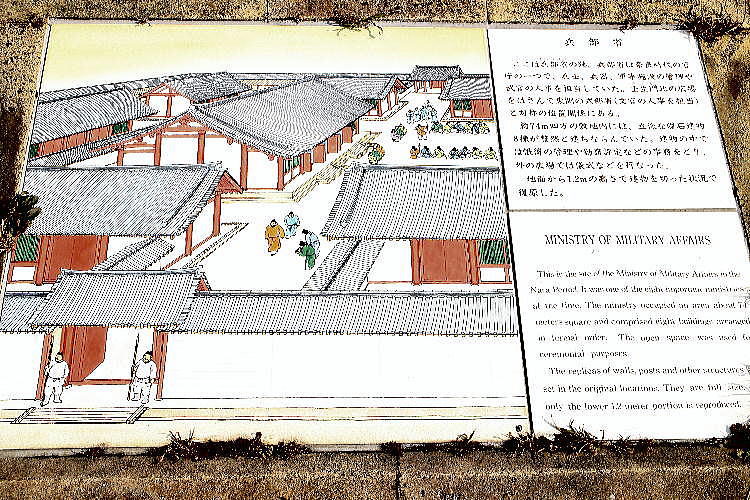 兵部省
ここは兵部省の跡。兵部省は奈良時代の官
庁の一つで、兵士、兵器、軍事施設の管理や
武官の人事を担当していた。壬生門北の広場
をはさんで東側の式部省(文官の人事を担当)
と対称の位置関係にある。
約74m四方の敷地内には、立派な礎石建物
8棟が整然と建ちならんでいた。建物の中で
は武官の管理や勤務評定などの事務をとり、
外の広場では儀式などを行なった。
地面から1.2mの高さで建物を切った状況で
復原した。
MINISTRY OF MILITARY AFFAIRS
This is the site of the Ministry of Military Affairs in the
Nara Period. It was one of the eight important ministries
at the time. The ministry occupied an area about 74
meters square and comprised eight buildings arranged
in formal order. The open space was used for
ceremonial purposes.
The replicas of walls, posts and other structures
set in the original locations. They are full size,
only the lower 1.2 meter portion is reproduced.